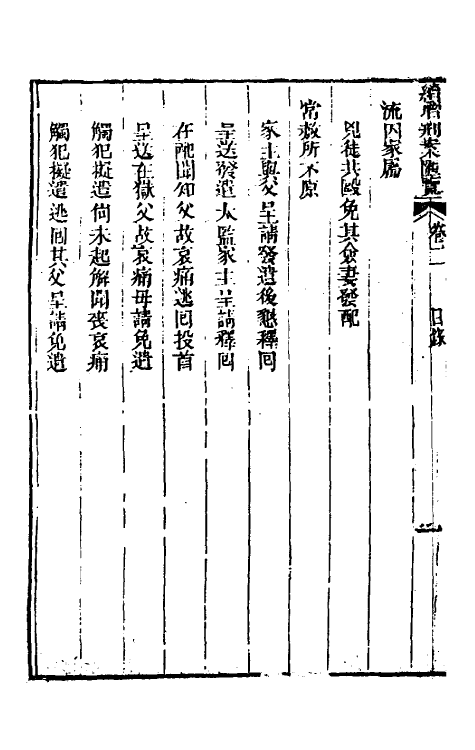 續增刑案匯覽 卷二 目錄 二
流囚家屬
兇徒共毆免其僉妻發配
常赦所不原
家主與父呈請發遣後懇釋回
呈送發遣太監家主呈請釋回
在配聞知父故哀痛逃回投首
呈送在獄父故哀痛母請免遣
觸犯擬遣尚未起解聞喪哀痛
觸犯擬遣逃回其父呈請免遣